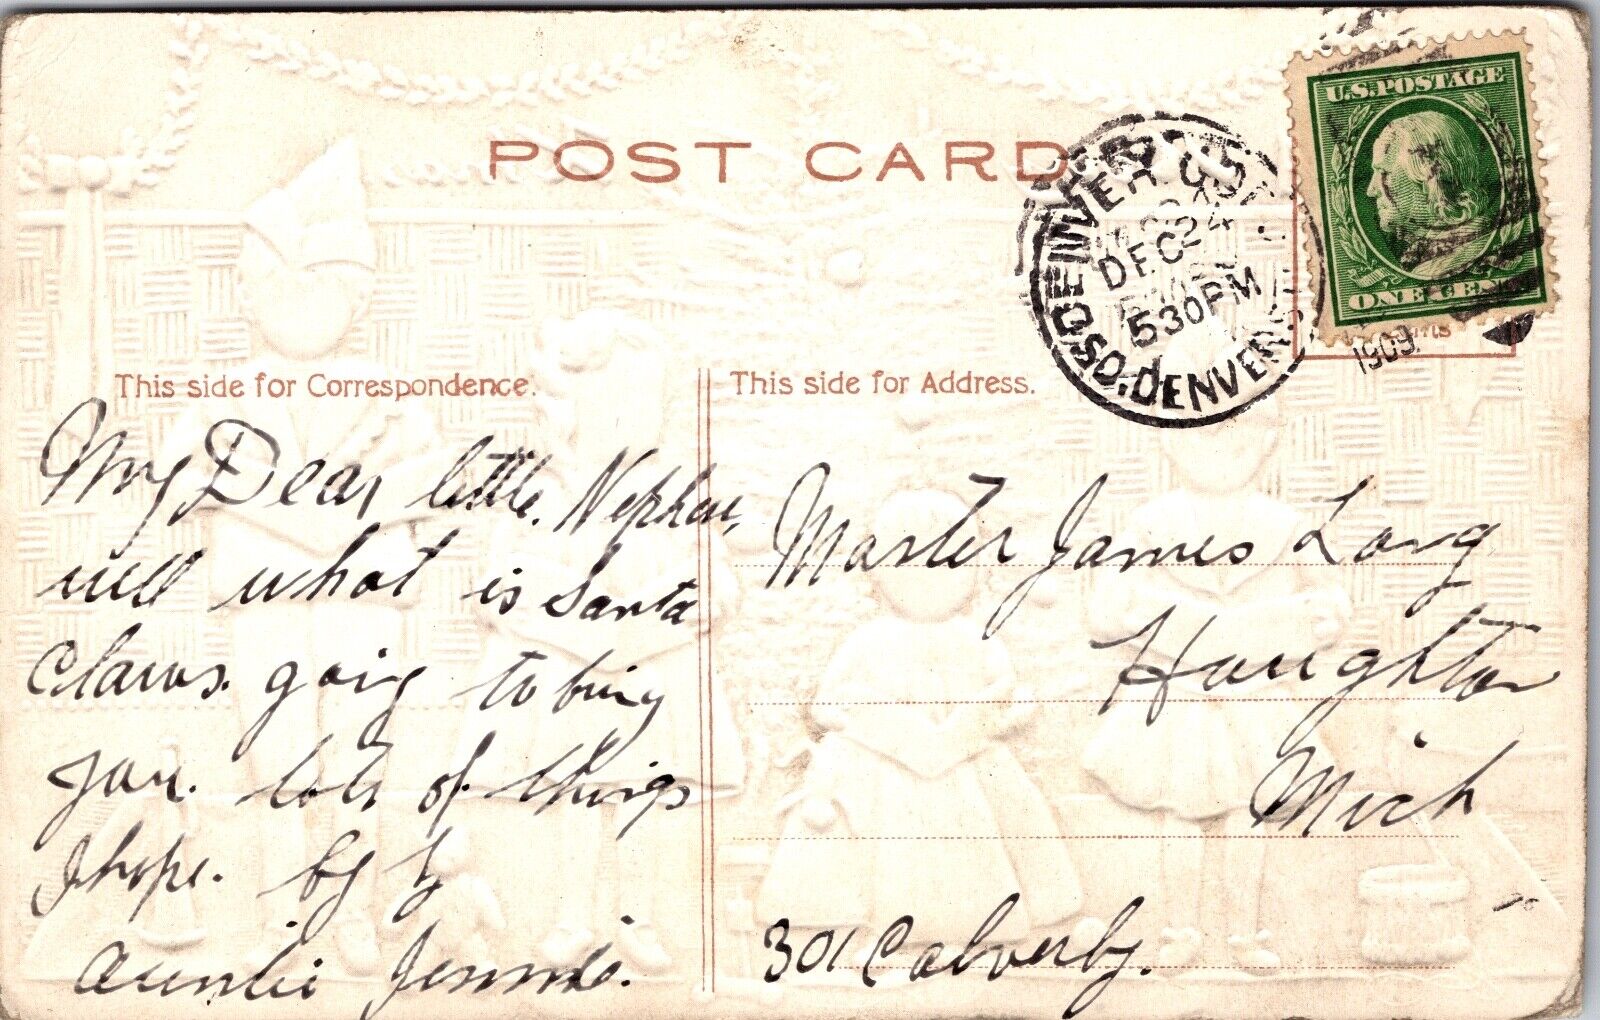 POST CARD
U.S. POSTAGE
ONE CENT
DENVER
DEC 24
5 30 PM
COLO. DENVER
1909
This side for Correspondence.
This side for Address.
My Dear little. Nephew,
well what is Santa
Claws. going to bring
you. lots of things
I hope. by by
Auntie Jennie.
Master James Long
Houghton
Mich
301 Calverly.